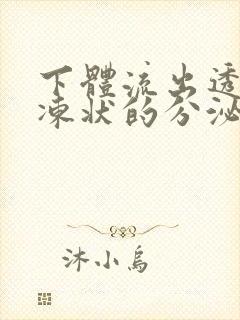 下體流出透
凍狀的分泌
沐小烏